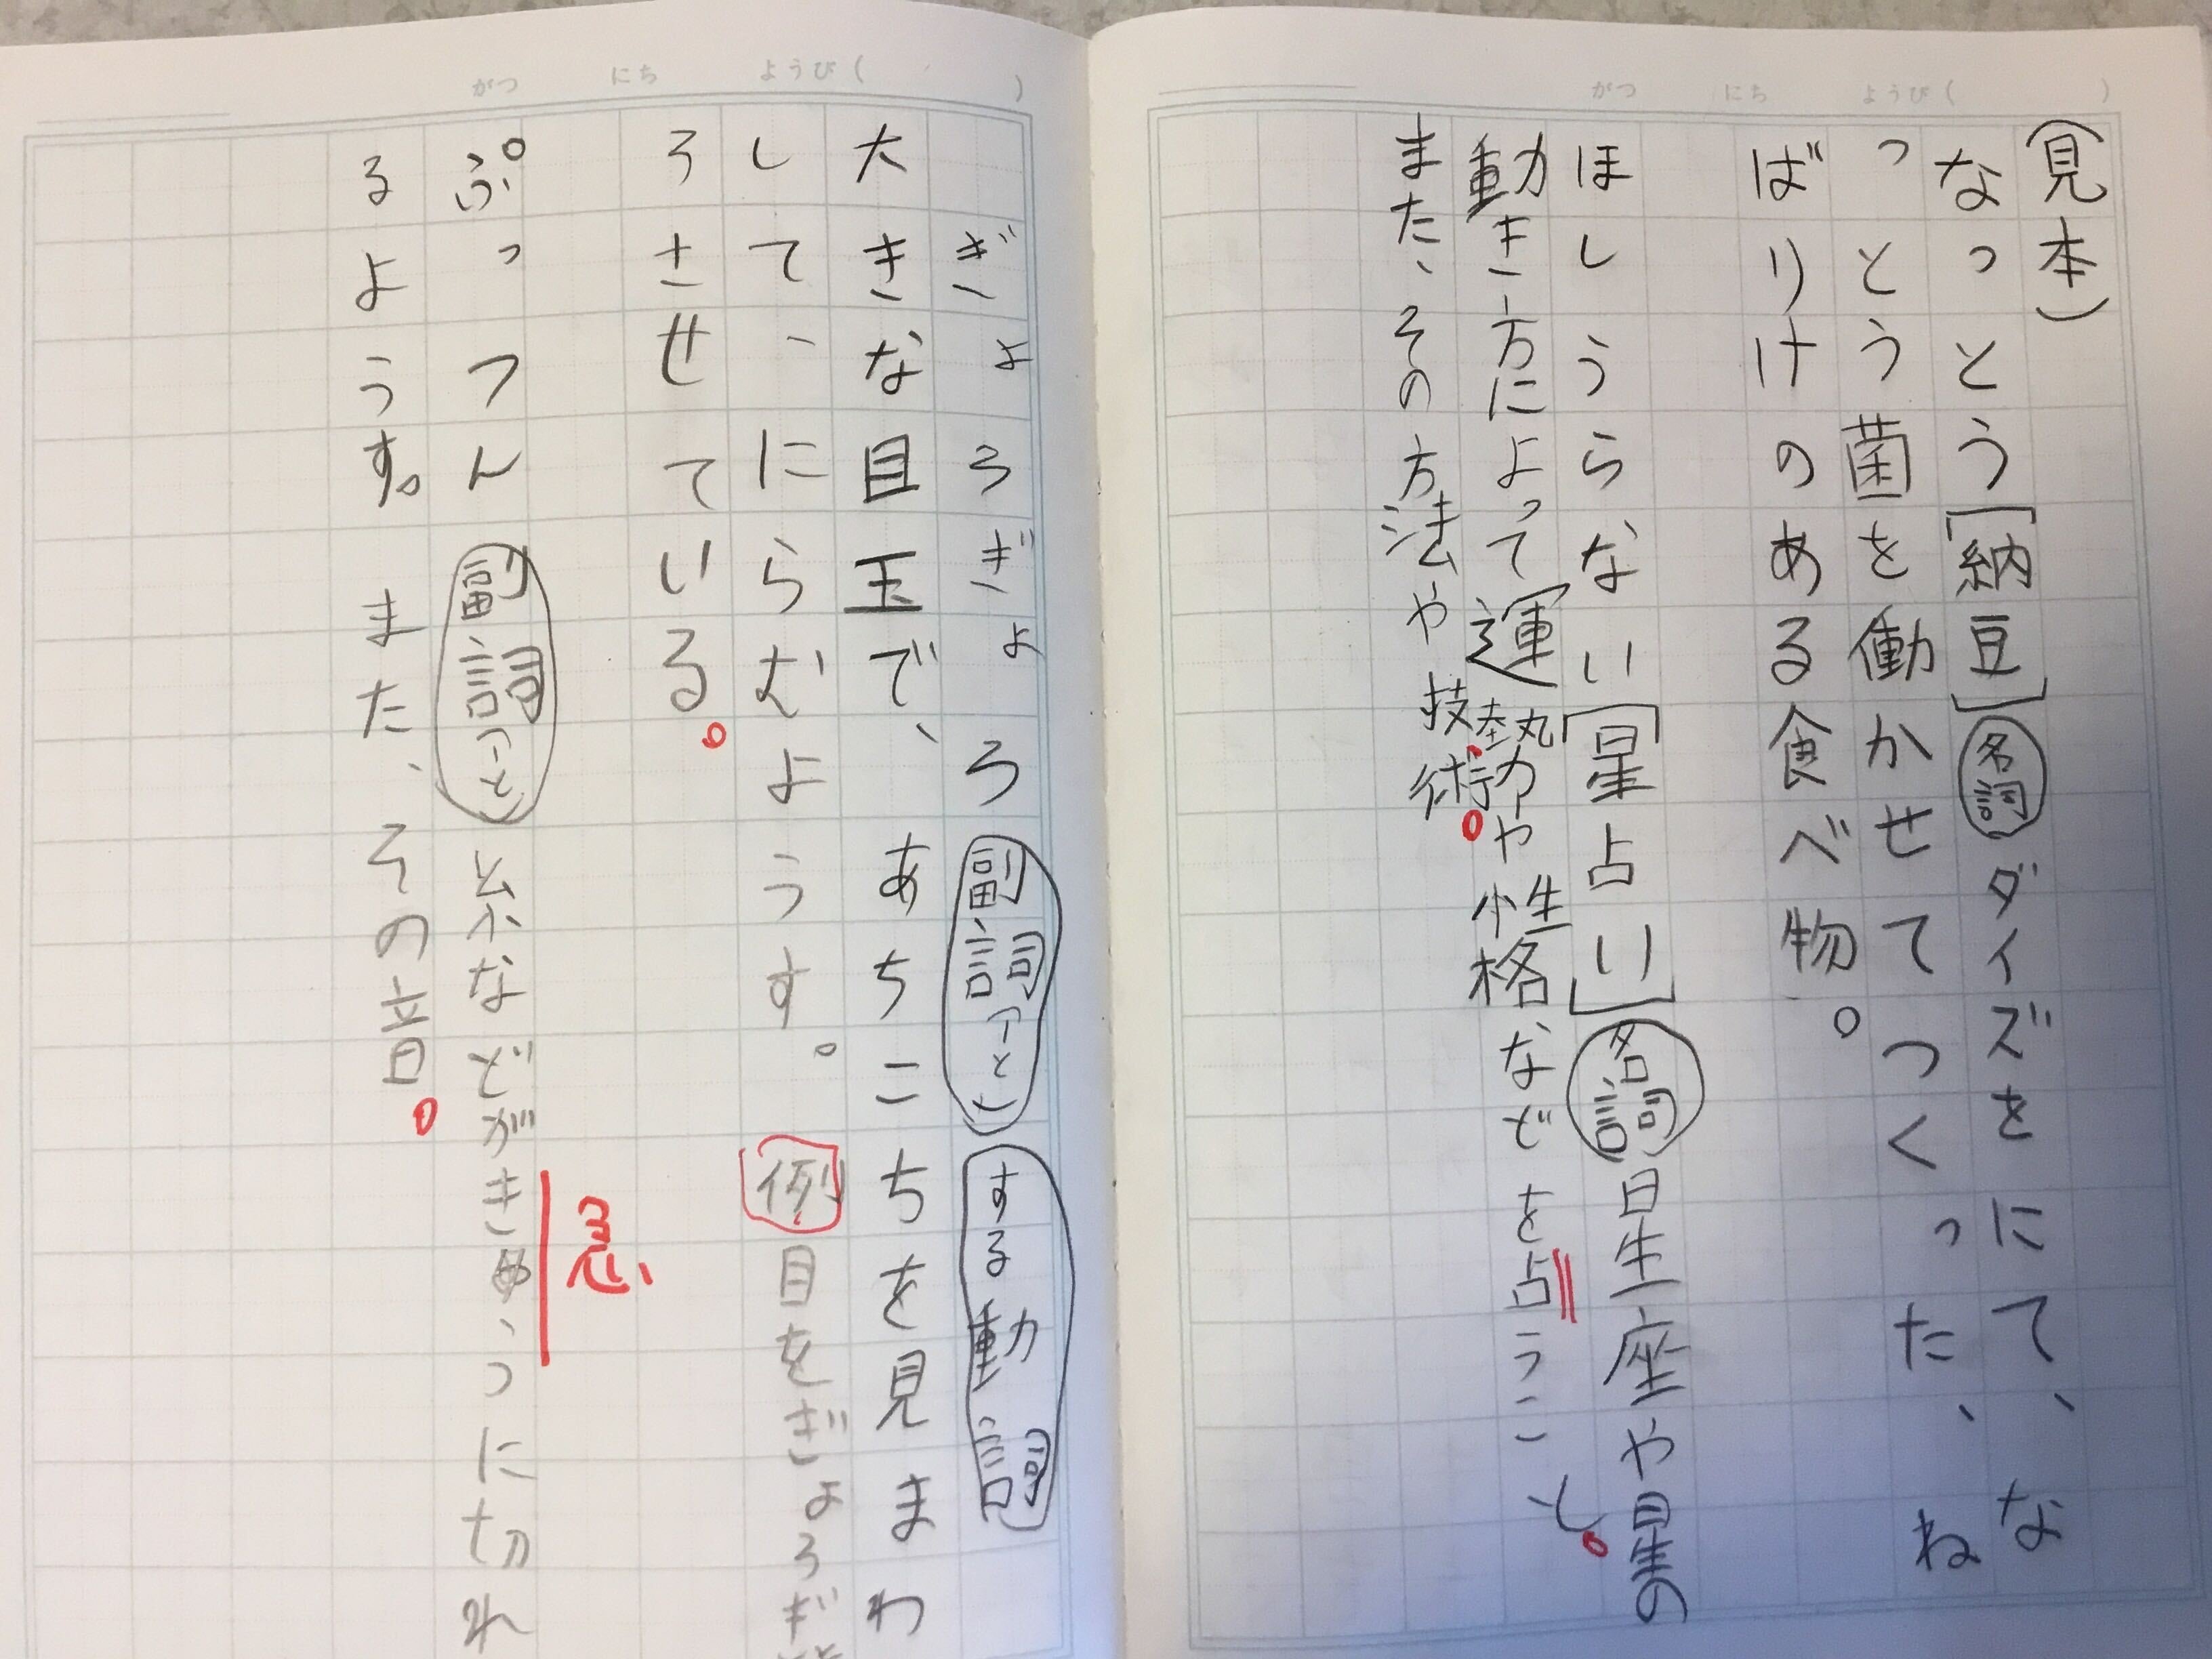 がつ にち ようび( )
(見本)
なっとう[納豆]名詞ダイズをにて、な
っとう菌を働かせてつくった、ね
ばりけのある食べ物。
ほしうらない[星占い]名詞星座や星の
動き方によって運勢や性格などを占うこと。
また、その方法や技術。
がつ にち ようび( )
ぎょろぎょろ副詞(と)する動詞
大きな目玉で、あちこちを見まわ
して、にらむようす。例目をぎょろぎょ
ろさせている。
ぷっつん副詞(と)糸などがきゅうに切れ
急
るようす。また、その音。